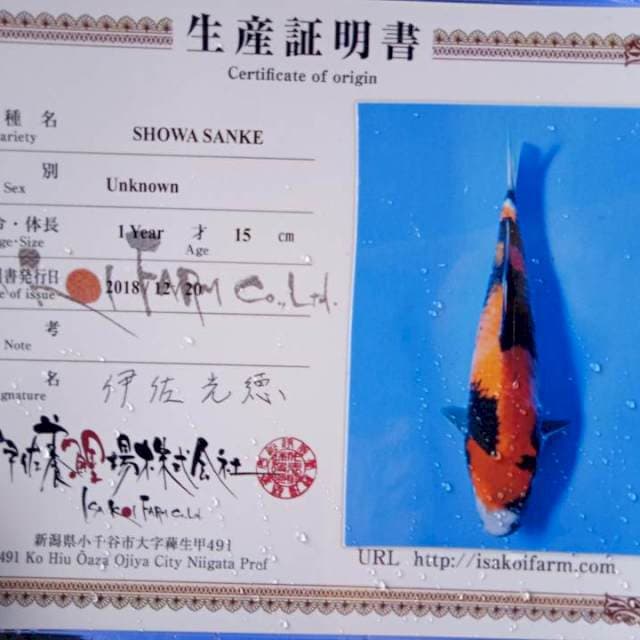 生産証明書
Certificate of origin
種名
ariety
SHOWA SANKE
別
Sex
Unknown
・体長
ge・Size
1 Year 才 15 cm
Age
書発行日
e of issue
2018/12/20
FARM Co.,Ltd.
考
Note
名
gnature
伊佐光徳
養鯉場株式会社
ISA KOI FARM Co.Ltd
新潟県小千谷市大字薭生甲491
491 Ko Hiu Ōaza Ojiya City Niigata Prof
URL http://isakoifarm.com